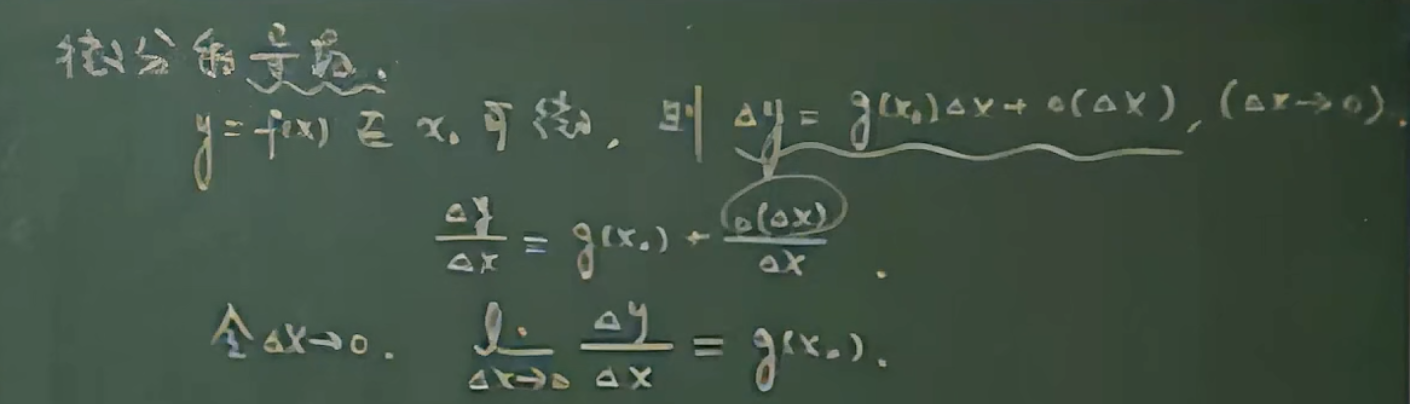 微分的意义.
y = f(x) 在 x₀ 可微, 则 Δy = g(x₀)Δx + o(Δx), (Δx→0).
Δy/Δx = g(x₀) + o(Δx)/Δx.
令 Δx→0. lim_{Δx→0} Δy/Δx = g(x₀).